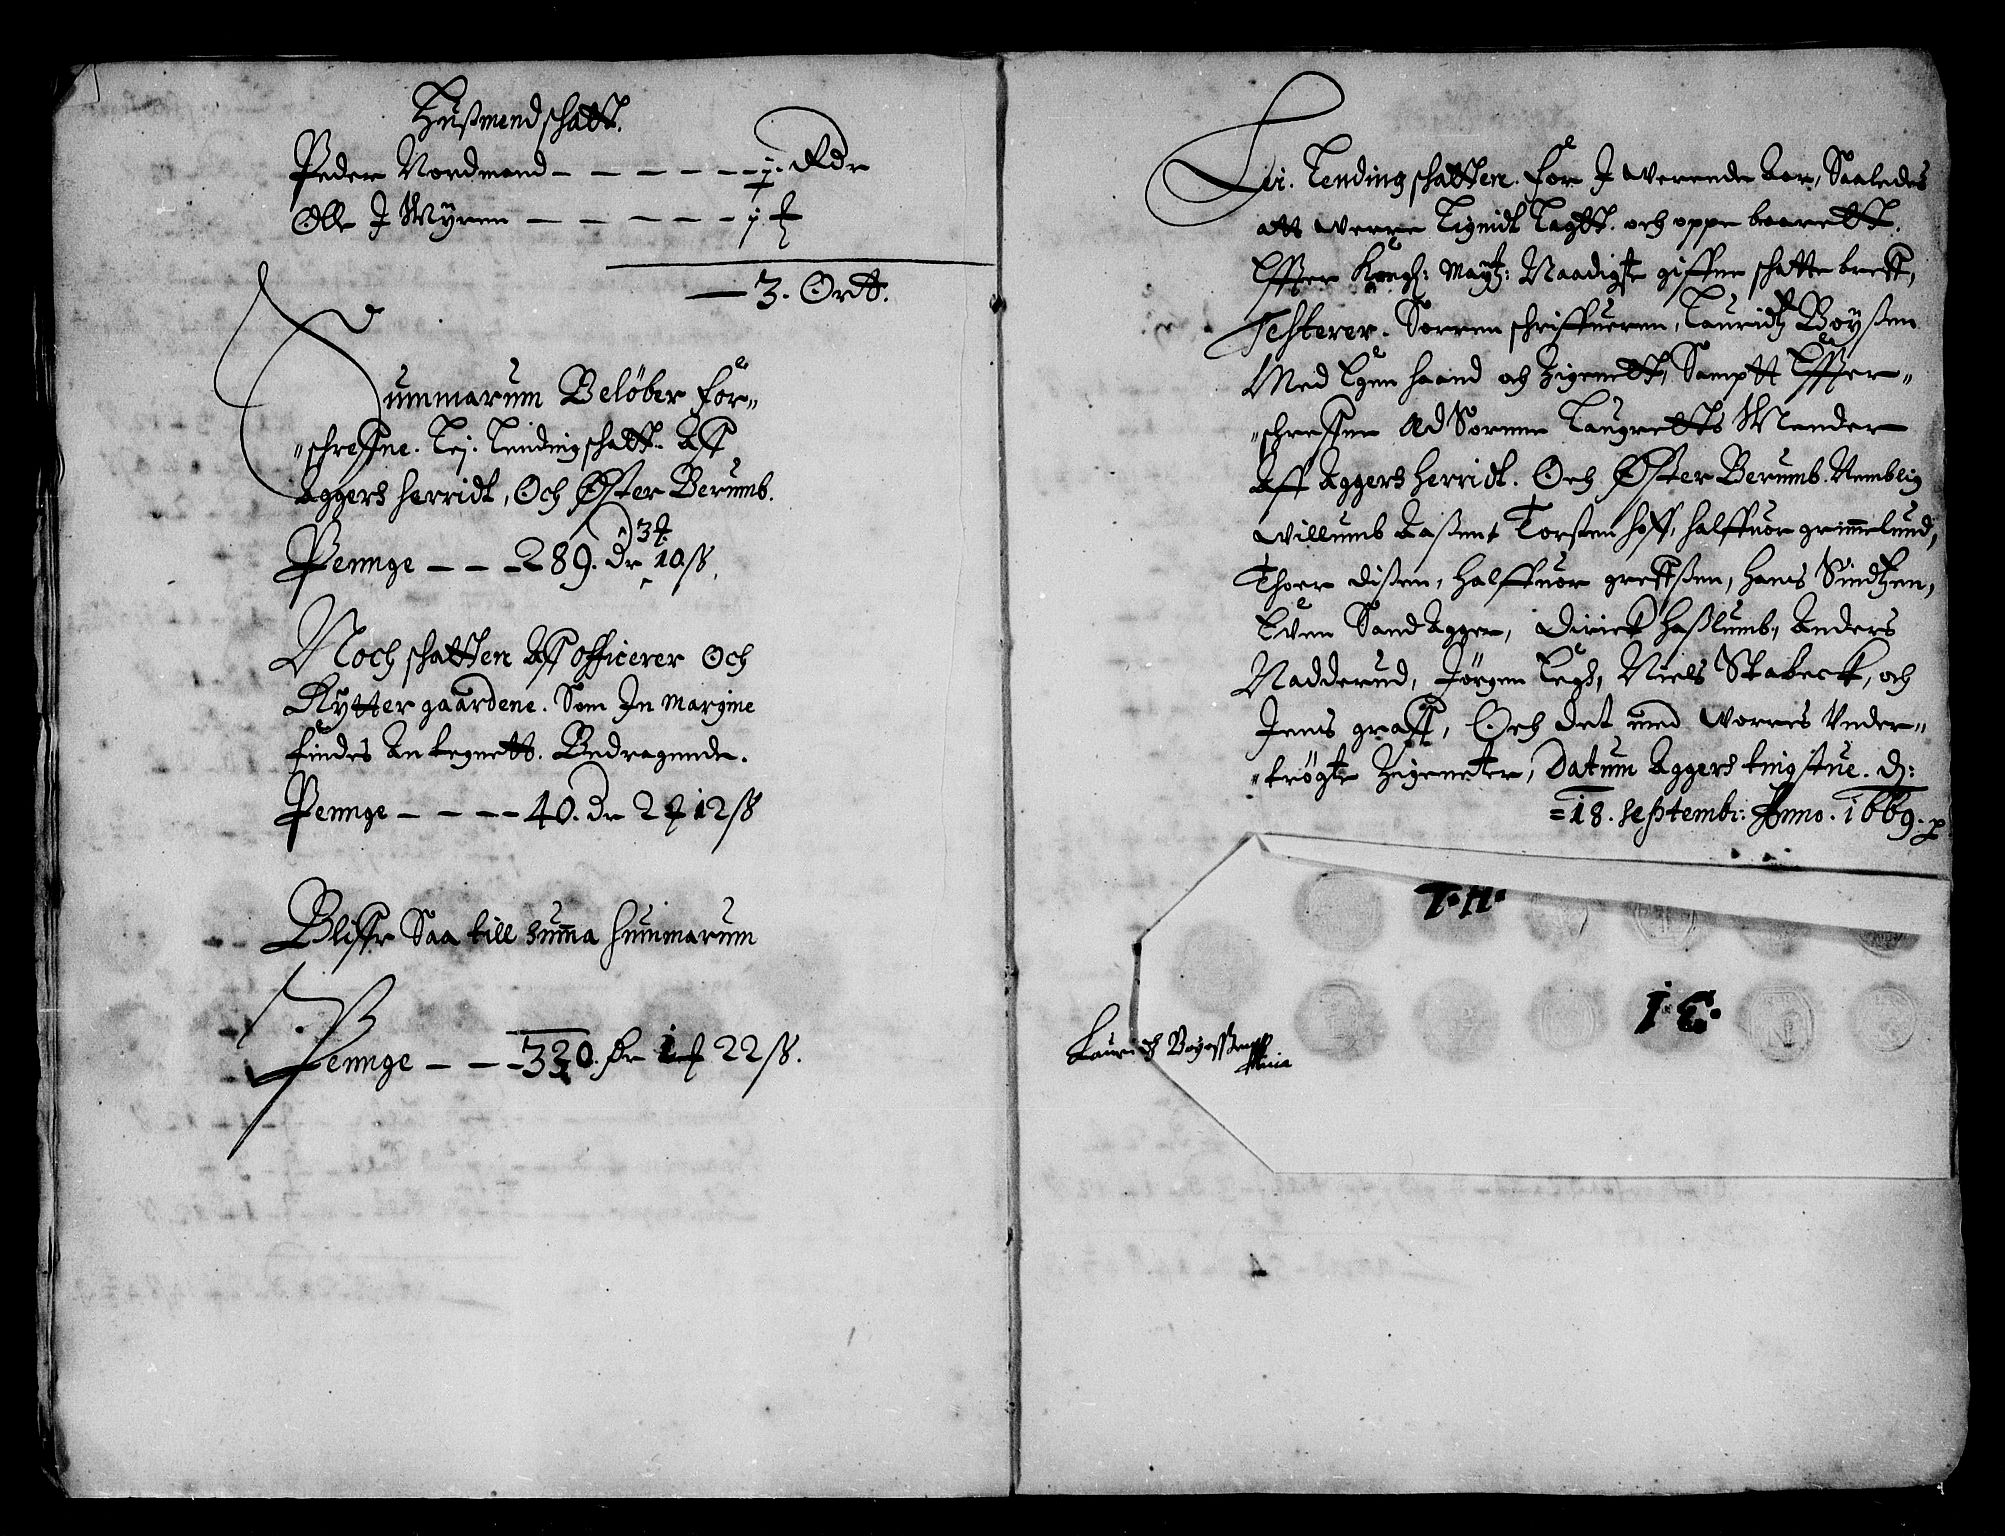 Hußmend schatt.
Peder Nordmand — — — — — — ½. Rdr
Olle J Myren — — — — — 1 ƒ
— 3. Ortt.
Summarum Beløber for-
schreffne. Lej: Lendingschatt. Aff
Aggers herridt, Och Øster Berumb.
Pennge — — — 289. dr 3ƒ 10 ß.
Noch schatten Aff officerer Och
Rytter gaardene. Som In Margine
findes Antegnett. Bedragende.
Pennge — — — — 40. dr 2 ƒ 12 ß
Bliffr Saa till summa summarum
Pennge — — — 330. dr 1 ƒ 22 ß.
Lei. Lending schatten. for J Werende Aar, Saaledes
att werre Lignidt Lagtt. och oppe baarett.
Effter Kongl: Maytz: Naadigste giffne schatte breff,
Testerer. Sorren schriffueren, Lauridtz Boyßen
Med Egen haand och Zignett, Samptt Effter-
schreffne Ed Sorrne Laugretts Mender
Aff Aggers herridt. Och Øster Berumb. Nemblig
Willumb Aaßen, Torsten hoff, halffuor grimmelund,
Thoer dißen, halffuor greffßen, hans Sindtzen,
Even Sand Agger, Dirick haßlumb, Anders
Nadderud, Jørgen Legs, Niels Stabeck, och
Jens graff, Och det med worres Vnder-
trøgte Zigneter, Datum Aggers tingstue. d:
18. septembr: Anno. 1669.
T. H.
I. E.
Lauridtz Boyeßen